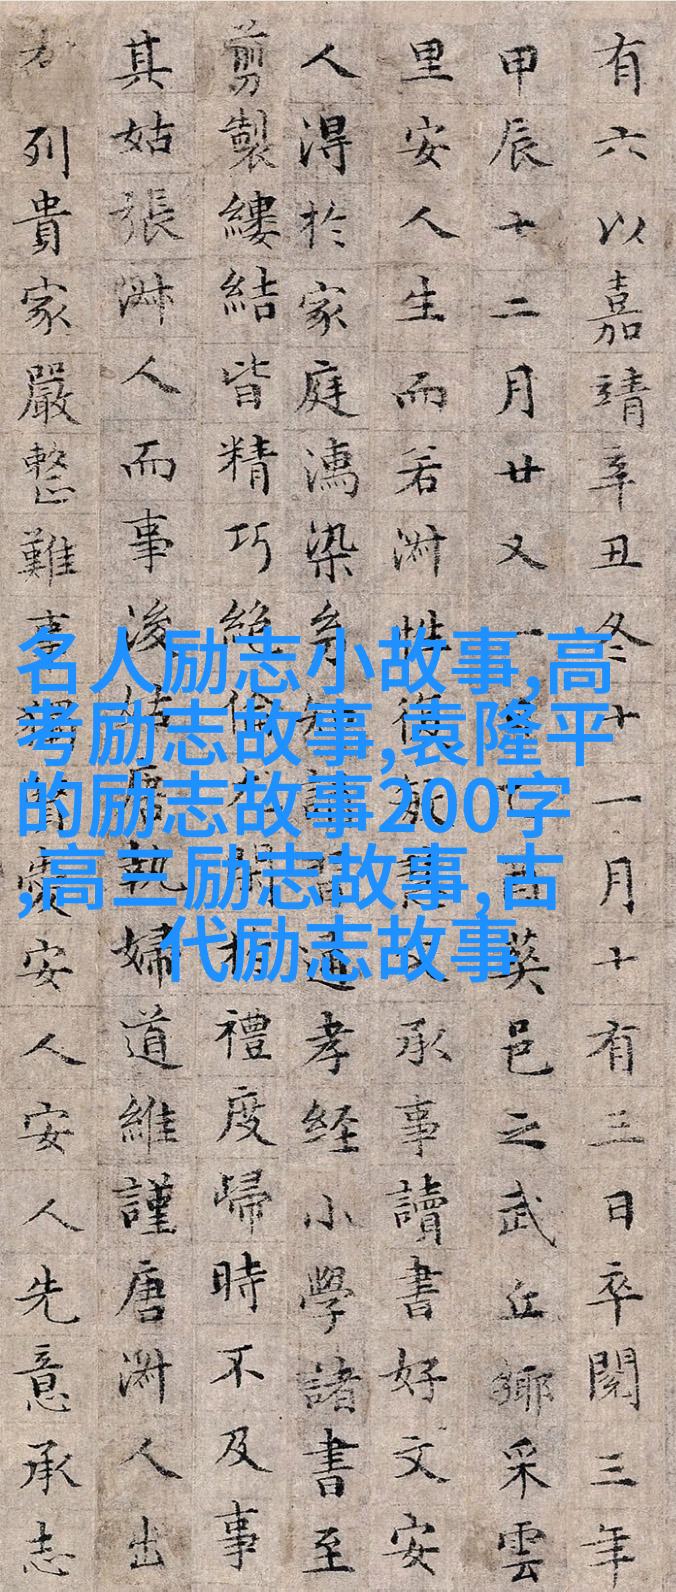 有六以嘉靖辛丑冬十一月十有三日卒閱三年
甲辰十二月廿又一酉葵邑之武丘鄉采雲
里安人生而若淑性復慧又承事讀書好文安
人淂於家庭濡染多知通孝經小學諸書至
剪製縷結皆精巧絕倫禮度歸時不及事
其姑張淑人而事後姑唐執婦道維謹唐淑人出
列貴家嚴整難事獨賢愛安人安人先意承志
名人励志小故事,高
考励志故事,袁隆平
的励志故事200字
,高三励志故事,古
代励志故事